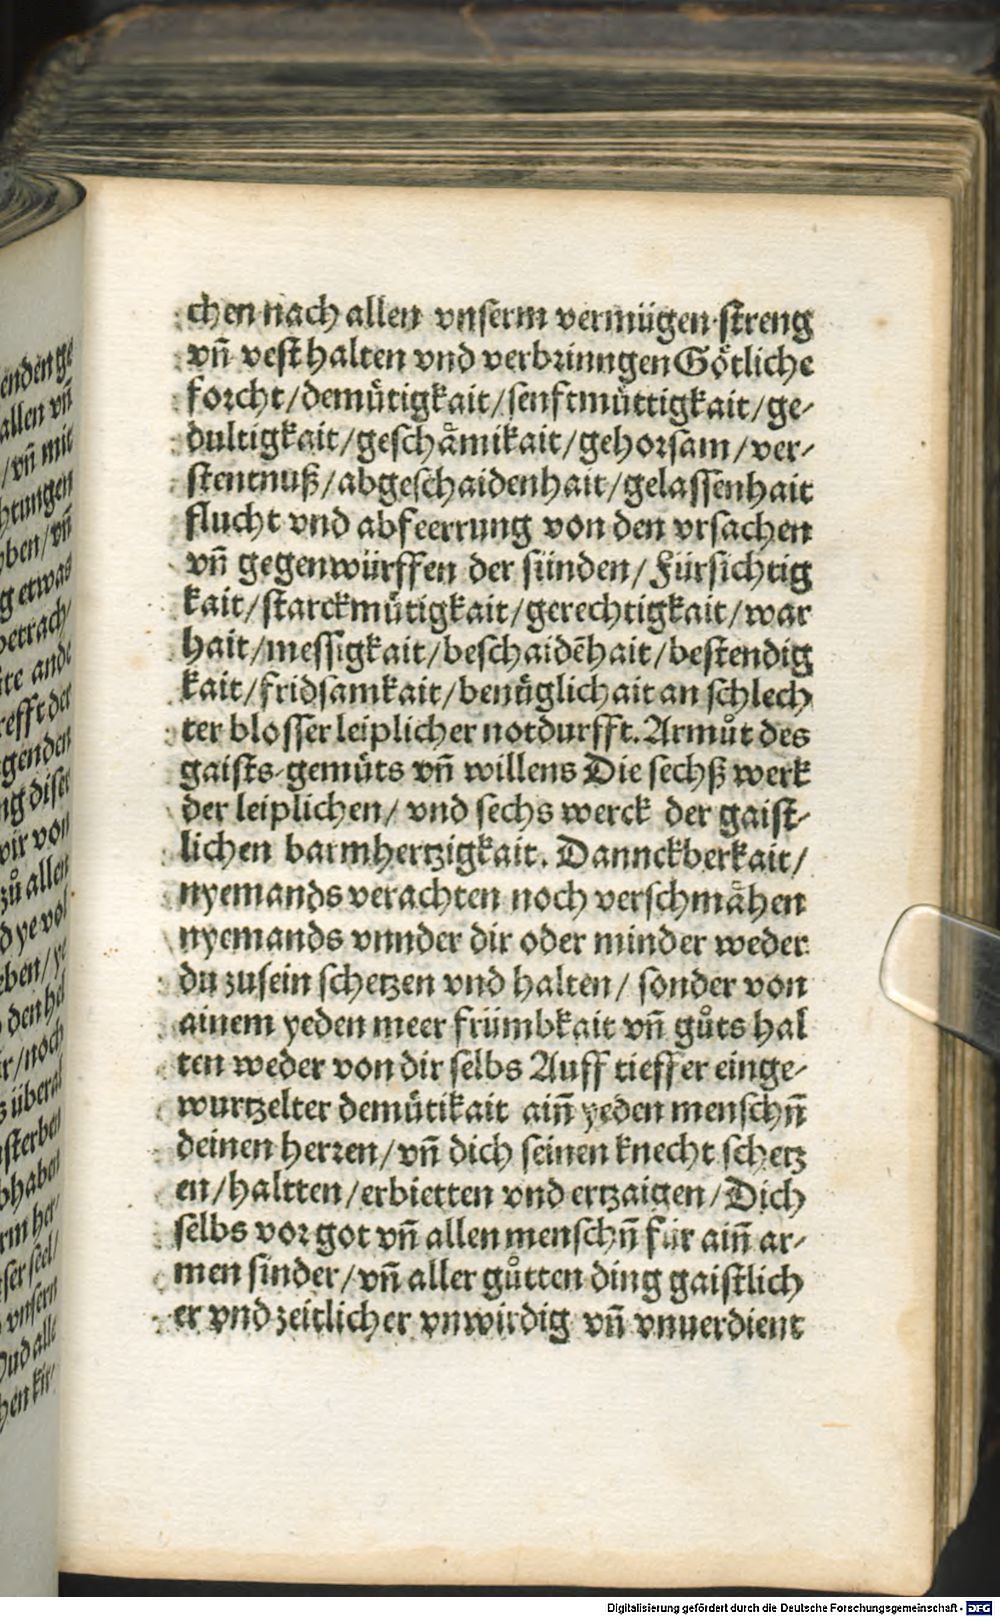 chen nach allen vnserm vermügen streng
vn̄ vest halten vnd verbrinngen Gȯtliche
forcht/demuͤtigkait/senftmuͤttigkait/ge-
dultigkait/geschaͤmikait/gehorsam/ver-
stentnuß/abgeschaidenhait/gelassenhait
flucht vnd abfeerrung von den vrsachen
vn̄ gegenwürffen der sünden/Fürsichtig
kait/starckmuͤtigkait/gerechtigkait/war
hait/messigkait/beschaidēhait/bestendig
kait/fridsamkait/benuͤglichait an schlech
ter blosser leiplicher notdurfft. Armuͦt des
gaists-gemuͤts vn̄ willens Die sechß werk
der leiplichen/ vnd sechs werck der gaist-
lichen barmhertzigkait. Dannckberkait/
nyemands verachten noch verschmaͤhen
nyemands vnnder dir oder minder weder
du zusein schetzen vnd halten/ sonder von
ainem yeden meer frümbkait vn̄ guͦts hal
ten weder von dir selbs Auff tieffer einge-
wurtzelter demuͤtikait ain̄ yeden menschn̄
deinen herren/vn̄ dich seinen knecht schetz
en/haltten/erbietten vnd ertzaigen/Dich
selbs vor got vn̄ allen menschn̄ für ain̄ ar-
men sinder/vn̄ aller guͦtten ding gaistlich
er vnd zeitlicher vnwirdig vn̄ vnuerdient
enden ge
allen vn̄
/vn̄ mit
htungen
ben/vn̄
g etwas
betrach/
ite ande
refft der
genden
ng diser
wir von
zuͦ allen
d ye vol
eben/ye
den hel
r/noch
s überal
sterben
bhaben
rm her-
ser seel/
vnsern
Vnd alle
hen kir-
Digitalisierung gefördert durch die Deutsche Forschungsgemeinschaft - DFG